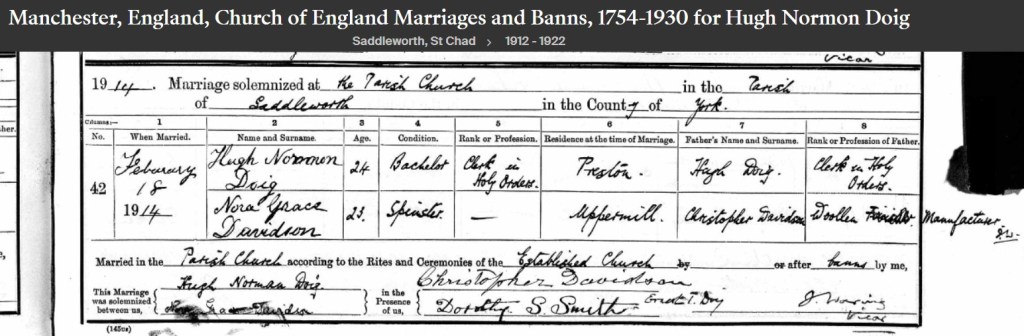 Manchester, England, Church of England Marriages and Banns, 1754-1930 for Hugh Normon Doig
Saddleworth, St Chad > 1912 - 1922
Vicar
1914. Marriage solemnized at the Parish Church in the Parish
of Saddleworth in the County of York.
Columns:— 1 2 3 4 5 6 7 8
No. When Married. Name and Surname. Age. Condition. Rank or Profession. Residence at the time of Marriage. Father's Name and Surname. Rank or Profession of Father.
42 Feburery 18 1914
Hugh Normon Doig 24 Bachelor Clerk in Holy Orders. Preston. Hugh Doig. Clerk in Holy Orders.
Nora Grace Davidson 23. Spinster. — Uppermill. Christopher Davidson Woollen Manufacturer
Married in the Parish Church according to the Rites and Ceremonies of the Established Church by or after banns by me,
This Marriage was solemnized between us, Hugh Norman Doig. Nora Grace Davidson
in the Presence of us, Christopher Davidson
Dorothy S. Smith Ernest T. Doig
J. Waring
Vicar
(145cx)
her.